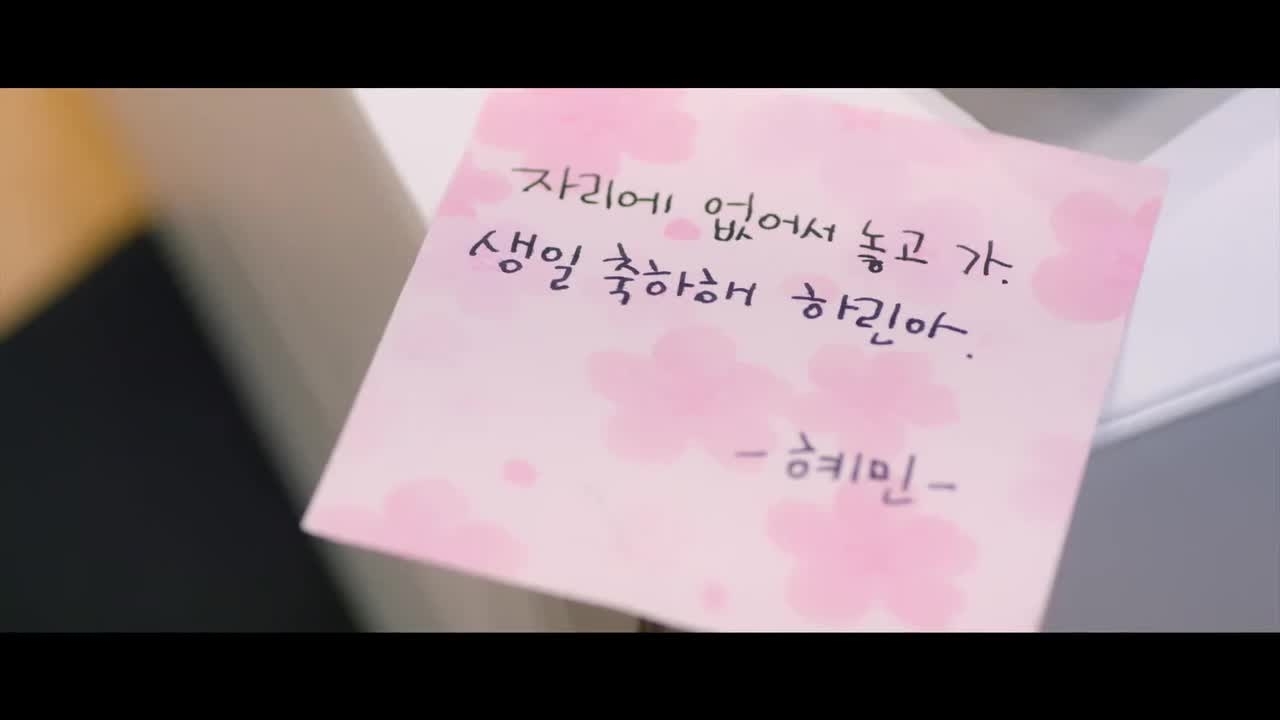 자리에 없어서 놓고 가.
생일 축하해 하린아.
- 혜민 -